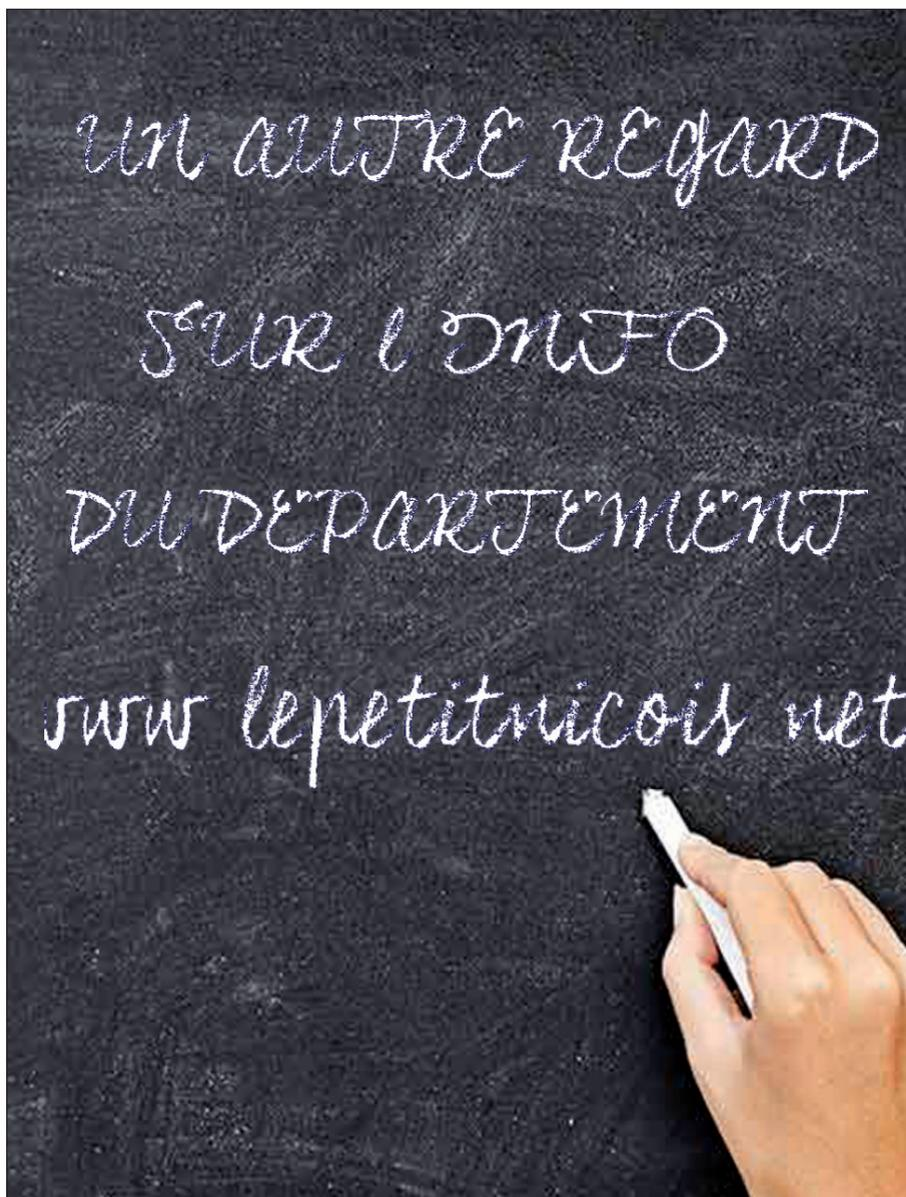 UN AUTRE REGARD
SUR l INFO
DU DEPARTEMENT
www lepetitnicois net